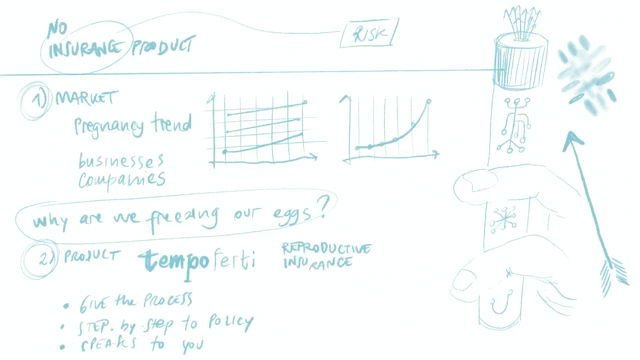 NO
INSURANCE PRODUCT
RISK
1) MARKET
Pregnancy trend
businesses
companies
why are we freezing our eggs?
2) PRODUCT tempoferti REPRODUCTIVE
INSURANCE
• GIVE the PROCESS
• STEP. by-step to POLICY
• SPEAKS to YOU